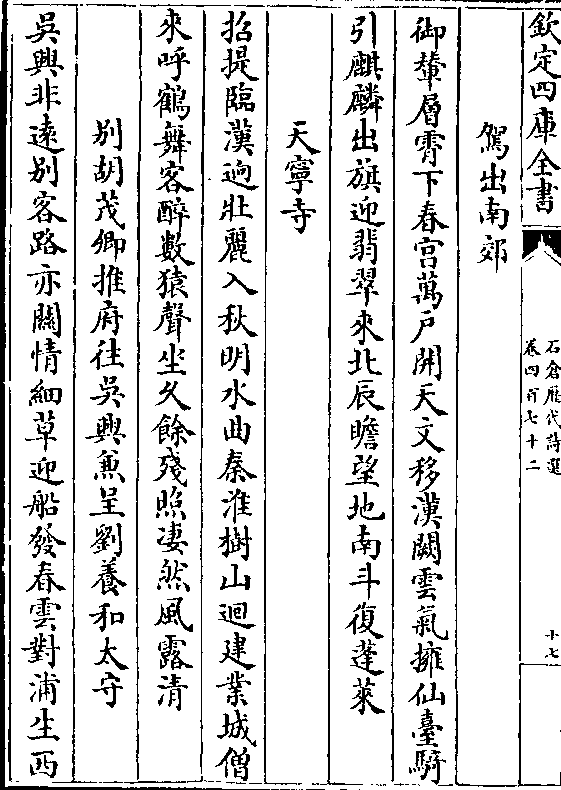 欽定四庫全書
石倉歷代詩選
卷四百七十二
十七
駕出南郊
御輦層霄下春宫萬户開天文移漢闕雲氣擁仙臺騎
引麒麟出旗迎翡翠來北辰瞻望地南斗復蓬萊
天寧寺
招提臨漢逈壯麗入秋明水曲秦淮樹山迴建業城僧
來呼鶴舞客醉數猿聲坐久餘殘照凄然風露清
别胡茂卿推府往吳興兼呈劉養和太守
吳興非遠别客路亦關情細草迎船發春雲對浦生西